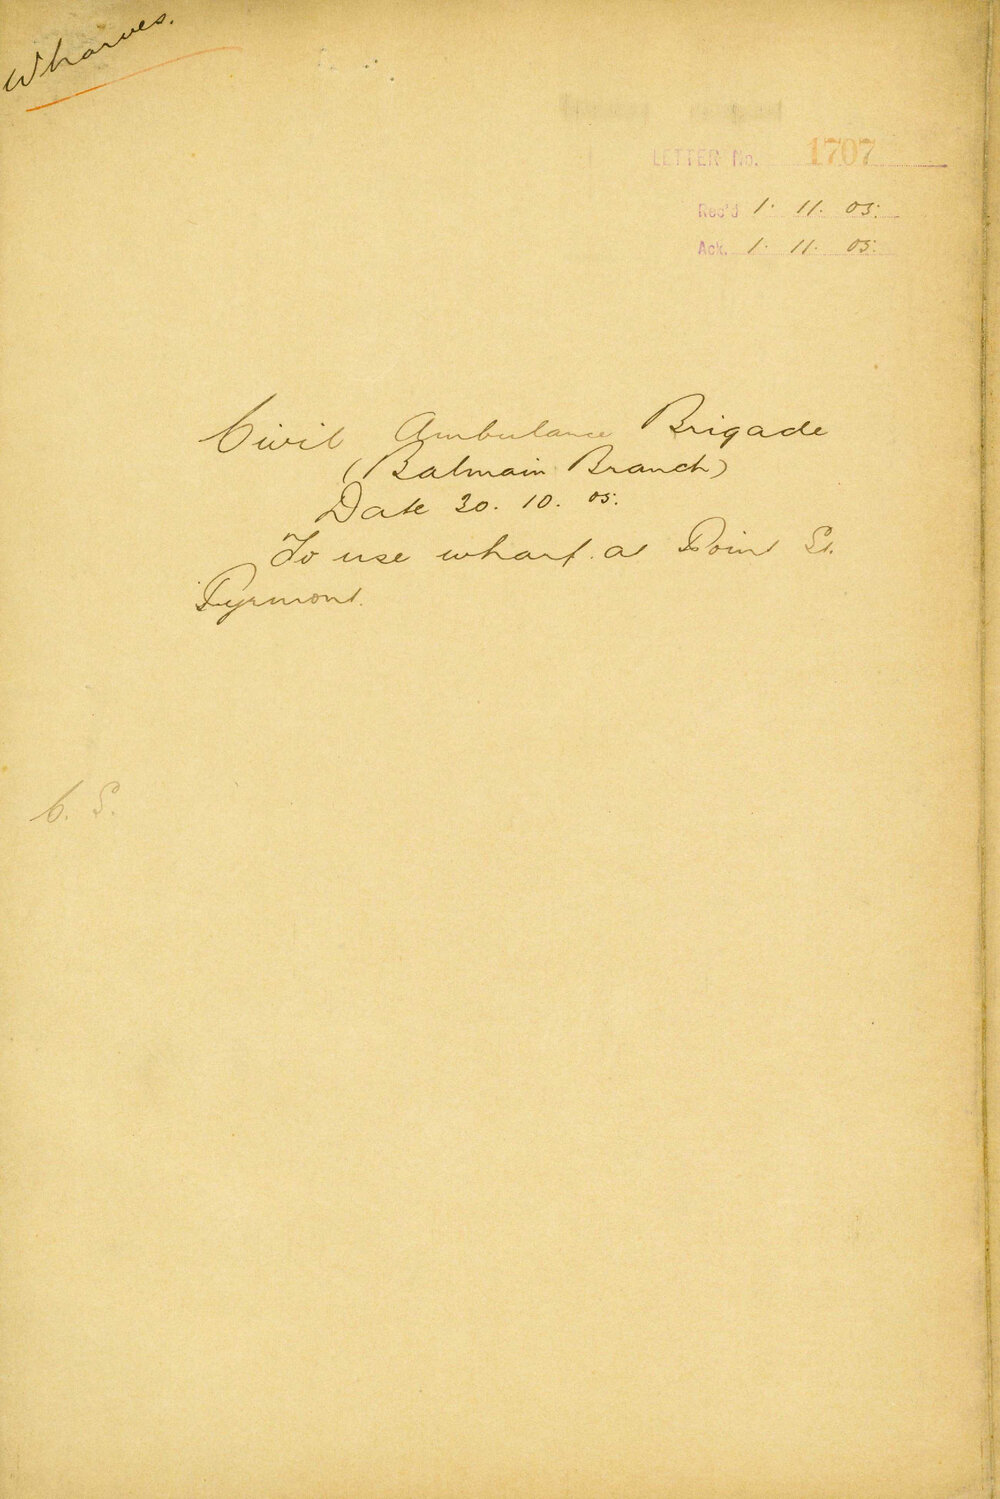 Wharves.
LETTER No. 1707
Rec'd 1. 11. 05.
Ack. 1. 11. 05.
Civil Ambulance Brigade
(Balmain Branch)
Date 30. 10. 05.
To use wharf at Point St.
Pyrmont.
C. S.